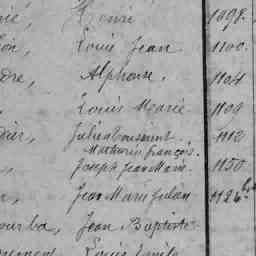 Henri 1098.
Louis Jean 1100.
dre, Alphonse. 1104
Louis Marie 1109
Julien Toussaint. 1112
Mathurin françois.
Joseph Jean Marie. 1150
Jean Marie Julien 1126 bis
Jean Baptiste
Louis Emile